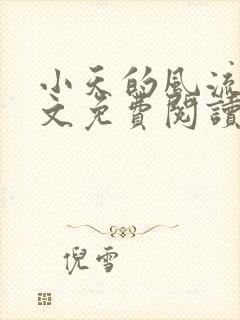 小天的风流
文免費閱讀
倪雪